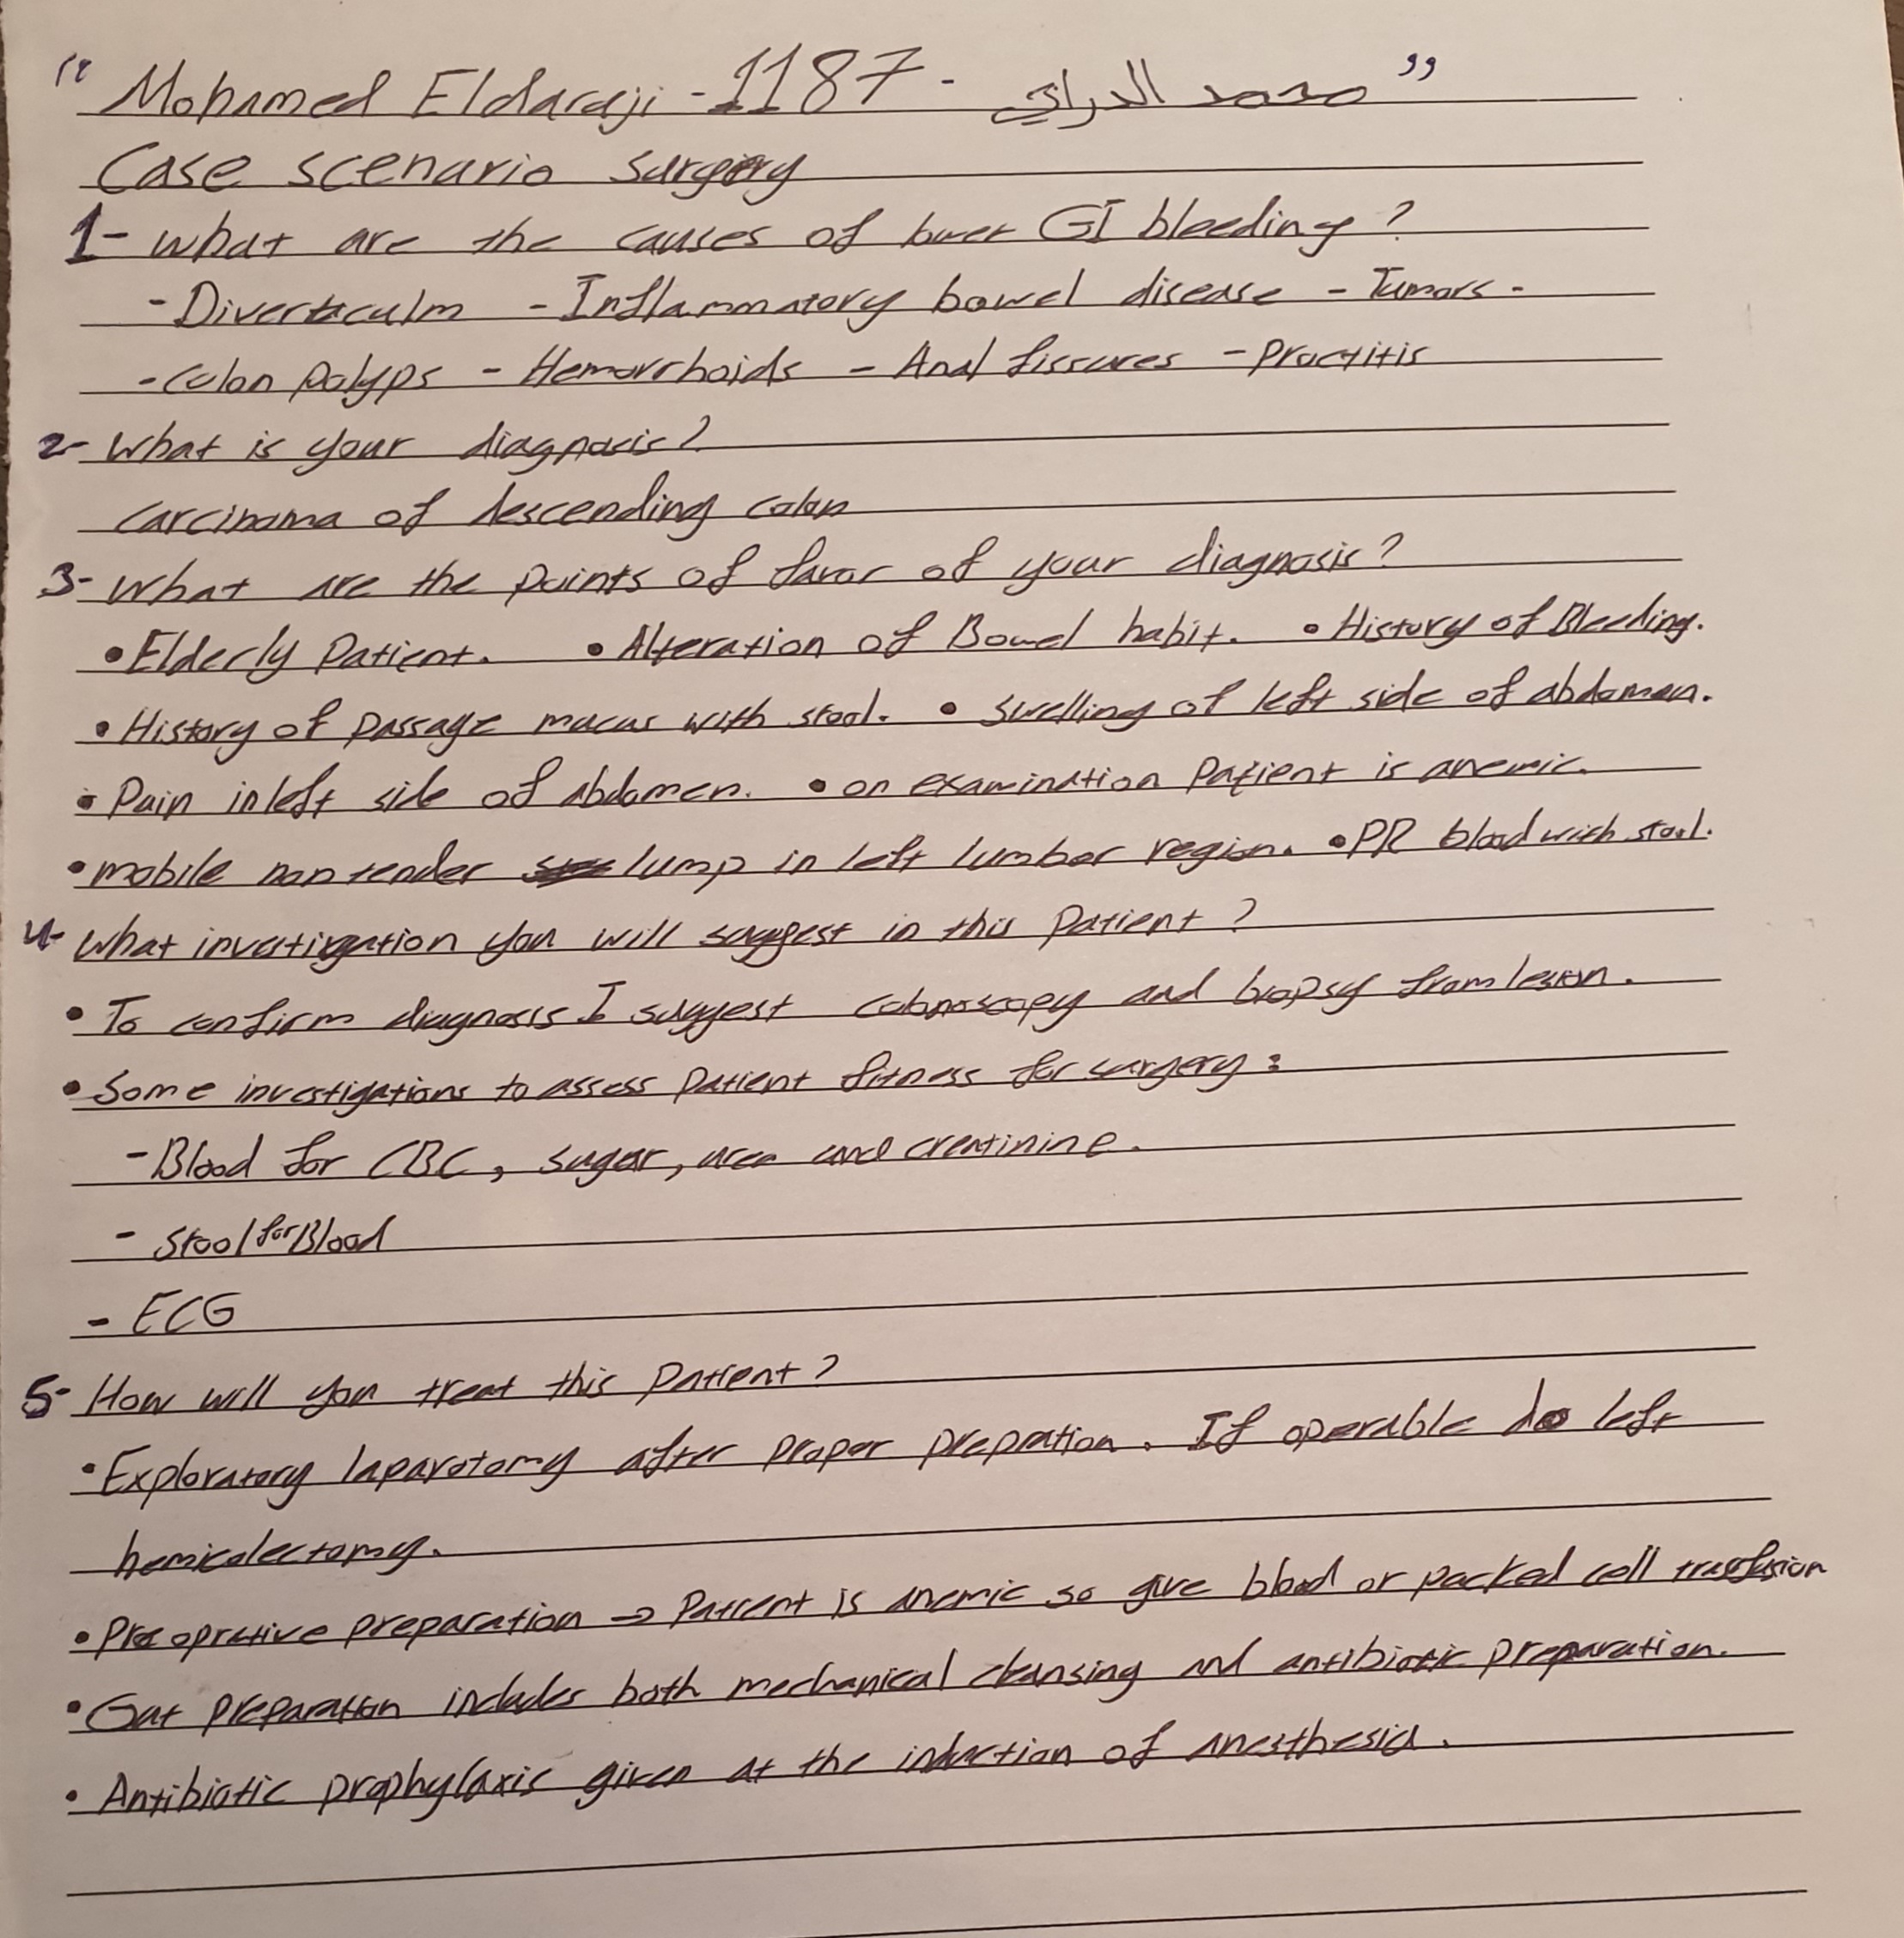 “ Mohamed Eldaraji - 1187 - محمد الدراجي ”
Case scenario surgery
1- What are the causes of lower GI bleeding ?
- Diverticulm - Inflammatory bowel disease - Tumors -
- Colon polyps - Hemorrhoids - Anal fissures - Proctitis
2- What is your diagnosis ?
Carcinoma of descending colon
3- What are the points of favor of your diagnosis ?
• Elderly Patient. • Alteration of Bowel habit. • History of Bleeding.
• History of passage mucus with stool. • Swelling of left side of abdomen.
• Pain in left side of abdomen. • on examination Patient is anemic.
• mobile non tender lump in left lumbar region. • PR blood with stool.
4- What investigation you will suggest in this Patient ?
• To confirm diagnosis I suggest colonoscopy and biopsy from lesion.
• Some investigations to assess patient fitness for surgery :
- Blood for CBC, sugar, urea and creatinine.
- Stool for Blood
- ECG
5- How will you treat this patient ?
• Exploratory laparotomy after proper prepration. If operable do left
hemicolectomy.
• Pre oprative preparation → Patient is anemic so give blood or packed cell transfusion
• Gut preparation includes both mechanical cleansing and antibiotic preparation.
• Antibiotic prophylaxis given at the induction of anesthesia.